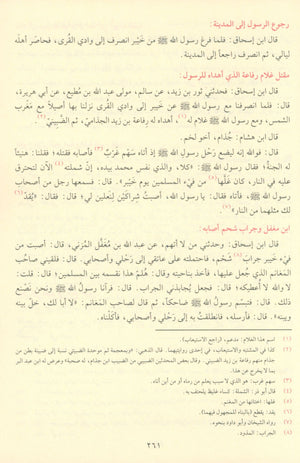 رجوع الرسول إلى المدينة:
قال ابن إسحاق: فلما فرغ رسول الله ﷺ من خَيْبر انصرف إلى وادي القُرى، فحاصَر أهله
ليالي، ثم انصرف راجعاً إلى المدينة.
مقتل غلام رفاعة الذي أهداه للرسول:
قال ابن إسحاق: فحدثني ثور بن زيد، عن سالم، مولى عبد الله بن مُطيع، عن أبي هريرة،
قال: فلما انصرفنا مع رسول الله ﷺ عن خَيْبر إلى وادي القُرى نزلنا بها أصيلاً مع مَغْرب
الشمس، ومع رسول الله ﷺ غلام له(١)، أهداه له رفاعة بن زيد الجذاميّ، ثم الضَّبينيّ(٢).
قال ابن هشام: جُذام، أخو لخم.
قال: فوالله إنه ليضع رَحْل رسول الله ﷺ إذ أتاه سَهْم غَرْب(٣) فأصابه فقتله؛ فقلنا: هنيئاً
له الجنةُ؛ فقال رسول الله ﷺ: «كلا، والذي نفس محمد بيده، إنّ شملته(٤) الآن لتحترق
عليه في النار، كان غَلَّها(٥) من فَيْء المسلمين يوم خَيْبر». قال: فسمعها رجل من أصحاب
رسول الله ﷺ، فأتاه فقال: يا رسول الله، أصبتُ شِراكَيْن لنعلين لي؛ قال: فقال: «يُقَدّ(٦)
لك مثلهما من النار»(٧).
ابن مغفل وجراب شحم أصابه:
قال ابن إسحاق: وحدثني من لا أتهم، عن عبد الله بن مُغَفَّل المُزَني، قال: أصبت من
فَيْء خيبر جِرَابَ(٨) شَحْم، فاحتملته على عاتقي إلى رَحْلي وأصحابي. قال: فلقيني صاحبُ
المَغانم الذي جُعل عليها، فأخذ بناحيته وقال: هَلُمّ هذا نقسمه بين المسلمين؛ قال: قلت:
لا والله لا أعطيكه؛ قال: فجعل يُجابذني الجراب. قال: فرآنا رسول الله ﷺ ونحن نَصْنع
ذلك. قال: فتبسّم رسول الله ﷺ ضاحكاً، ثم قال لصاحب المَغانم: «لا أبا لك، خلّ بينه
وبينه». قال: فأرسله، فانطلقتُ به إلى رَحْلي وأصحابي، فأكلناه.
(١) اسم هذا الغلام: مدعم، (راجع الاستيعاب)
(٣) سهم غرب: هو الذي لا يعلم من رماه أو من أين أتاه.
(٤) قال أبو ذر: الشملة: كساء غليظ يلتحف به.
(٥) غلها: اختانها من المغنم.
(٦) يقد: يقطع (بالبناء للمجهول فيهما).
(٧) رواه الشيخان وأبو داود بنحوه.
(٨) الجراب: المذود.
٢٦١